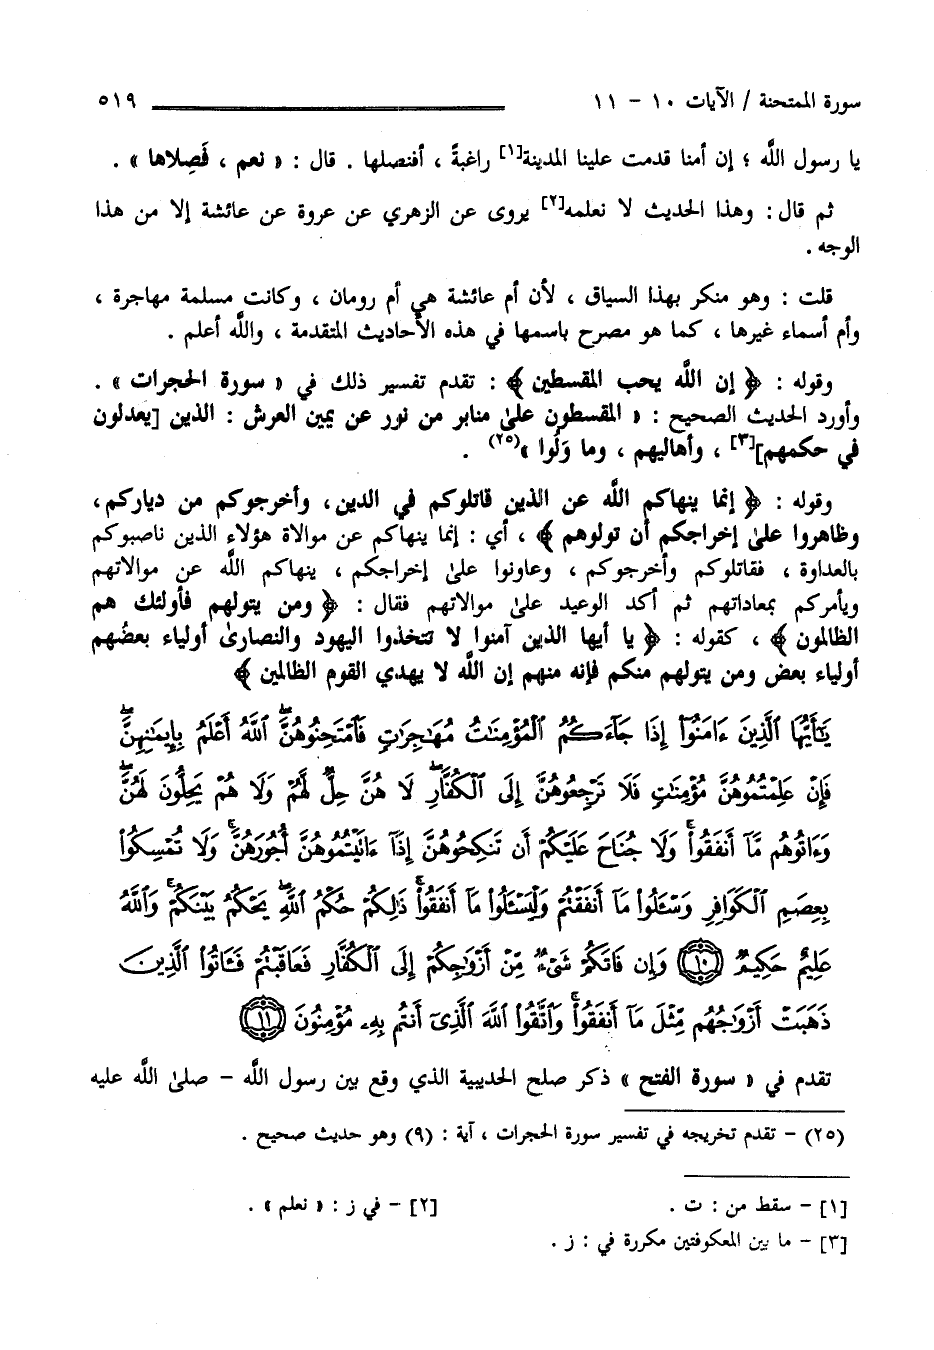 سورة الممتحنة / الآيات ١٠ - ١١ ٥١٩
يا رسول اللَّه ؛ إن أمنا قدمت علينا المدينة[١] راغبةً ، أفنصلها . قال : « نعم ، فَصِلاها » .
ثم قال : وهذا الحديث لا نعلمه[٢] يروى عن الزهري عن عروة عن عائشة إلا من هذا
الوجه .
قلت : وهو منكر بهذا السياق ، لأن أم عائشة هي أم رومان ، وكانت مسلمة مهاجرة ،
وأم أسماء غيرها ، كما هو مصرح باسمها في هذه الأحاديث المتقدمة ، واللَّه أعلم .
وقوله : ﴿ إن اللَّه يحب المقسطين ﴾ : تقدم تفسير ذلك في « سورة الحجرات » .
وأورد الحديث الصحيح : « المقسطون علىٰ منابر من نور عن يمين العرش : الذين [يعدلون
في حكمهم][٣] ، وأهاليهم ، وما وَلُوا »(٢٥) .
وقوله : ﴿ إنما ينهاكم اللَّه عن الذين قاتلوكم في الدين، وأخرجوكم من دياركم،
وظاهروا علىٰ إخراجكم أن تولوهم ﴾ ، أي : إنما ينهاكم عن موالاة هؤلاء الذين ناصبوكم
بالعداوة ، فقاتلوكم وأخرجوكم ، وعاونوا علىٰ إخراجكم ، ينهاكم اللَّه عن موالاتهم
ويأمركم بمعاداتهم ثم أكد الوعيد علىٰ موالاتهم فقال : ﴿ ومن يتولهم فأولئك هم
الظالمون ﴾ ، كقوله : ﴿ يا أيها الذين آمنوا لا تتخذوا اليهود والنصارىٰ أولياء بعضُهم
أولياء بعض ومن يتولهم منكم فإنه منهم إن اللَّه لا يهدي القوم الظالمين ﴾
يَـٰٓأَيُّهَا ٱلَّذِينَ ءَامَنُوٓا۟ إِذَا جَآءَكُمُ ٱلْمُؤْمِنَـٰتُ مُهَـٰجِرَٰتٍ فَٱمْتَحِنُوهُنَّ ۖ ٱللَّهُ أَعْلَمُ بِإِيمَـٰنِهِنَّ ۖ
فَإِنْ عَلِمْتُمُوهُنَّ مُؤْمِنَـٰتٍ فَلَا تَرْجِعُوهُنَّ إِلَى ٱلْكُفَّارِ ۖ لَا هُنَّ حِلٌّ لَّهُمْ وَلَا هُمْ يَحِلُّونَ لَهُنَّ ۖ
وَءَاتُوهُم مَّآ أَنفَقُوا۟ ۚ وَلَا جُنَاحَ عَلَيْكُمْ أَن تَنكِحُوهُنَّ إِذَآ ءَاتَيْتُمُوهُنَّ أُجُورَهُنَّ ۚ وَلَا تُمْسِكُوا۟
بِعِصَمِ ٱلْكَوَافِرِ وَسْـَٔلُوا۟ مَآ أَنفَقْتُمْ وَلْيَسْـَٔلُوا۟ مَآ أَنفَقُوا۟ ۚ ذَٰلِكُمْ حُكْمُ ٱللَّهِ ۖ يَحْكُمُ بَيْنَكُمْ ۚ وَٱللَّهُ
عَلِيمٌ حَكِيمٌ ١٠ وَإِن فَاتَكُمْ شَىْءٌ مِّنْ أَزْوَٰجِكُمْ إِلَى ٱلْكُفَّارِ فَعَاقَبْتُمْ فَـَٔاتُوا۟ ٱلَّذِينَ
ذَهَبَتْ أَزْوَٰجُهُم مِّثْلَ مَآ أَنفَقُوا۟ ۚ وَٱتَّقُوا۟ ٱللَّهَ ٱلَّذِىٓ أَنتُم بِهِۦ مُؤْمِنُونَ ١١
تقدم في « سورة الفتح » ذكر صلح الحديبية الذي وقع بين رسول اللَّه - صلىٰ اللَّه عليه
(٢٥) - تقدم تخريجه في تفسير سورة الحجرات ، آية : (٩) وهو حديث صحيح .
[١] - سقط من : ت . [٢] - في ز : « نعلم » .
[٣] - ما بين المعكوفتين مكررة في : ز .